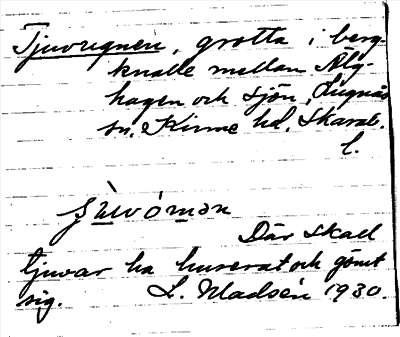 Tjuvugnen, grotta i berg-
knalle mellan Älg-
hagen och sjön, Lugnås
sn, Kinne hd, Skarab.
l.
Där skall
tjuvar ha huserat och gömt
sig. L. Madsén 1930.